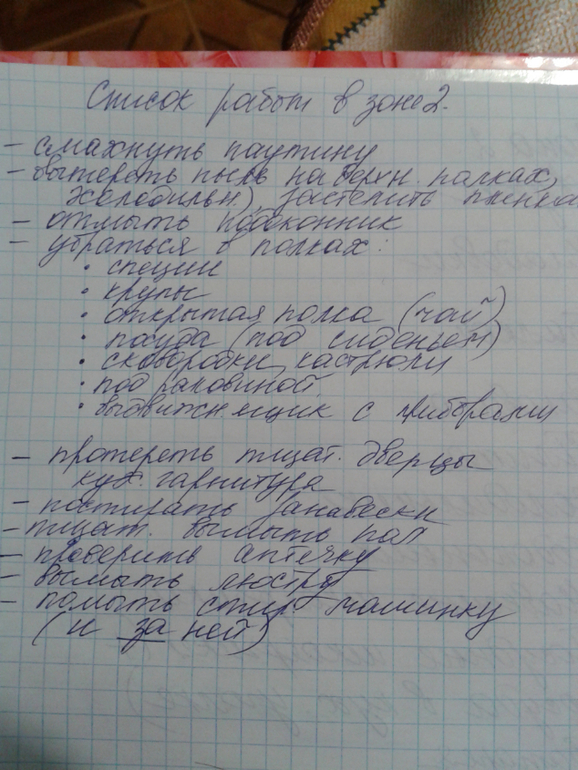 Список работ в зоне 2.
- смахнуть паутину
- вытереть пыль на верхн. полках,
холодильн), застелить пленка
- отмыть подоконник
- убраться в полках:
• специи
• крупы
• открытая полка (чай)
• посуда (под сиденьем)
• сковородки, кастрюли
• под раковиной
• выдвижн ящик с приборами
- протереть тщат. дверцы
кух. гарнитура
- постирать занавески
- тщат. вымыть пол
- проверить аптечку
- вымыть люстру
- помыть стир машинку
(и за ней)